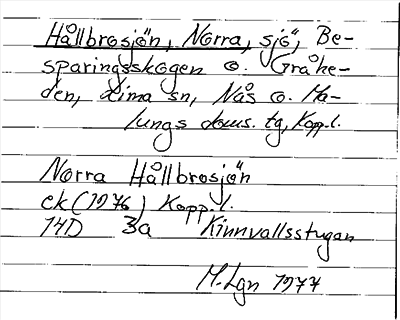 Hållbrosjön, Norra, sjö, Be-
sparingsskogen o. Gråhe-
den, Lima sn, Nås o. Ma-
lungs doms. tg, Kopp. l.
Norra Hållbrosjön
ek (1976) Kopp. l.
14D 3a Kinnvallsstugan
M. Lgn 1977